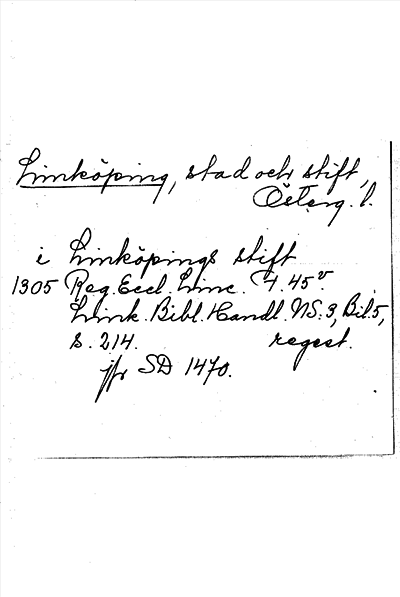 Linköping, stad och stift,
Österg. l.
i Linköpings stift
1305 Reg. Eccl. Linc. f. 45v.
Link. Bibl. Handl. NS. 3, Bil. 5,
s. 214. regest.
jfr SD 1470.